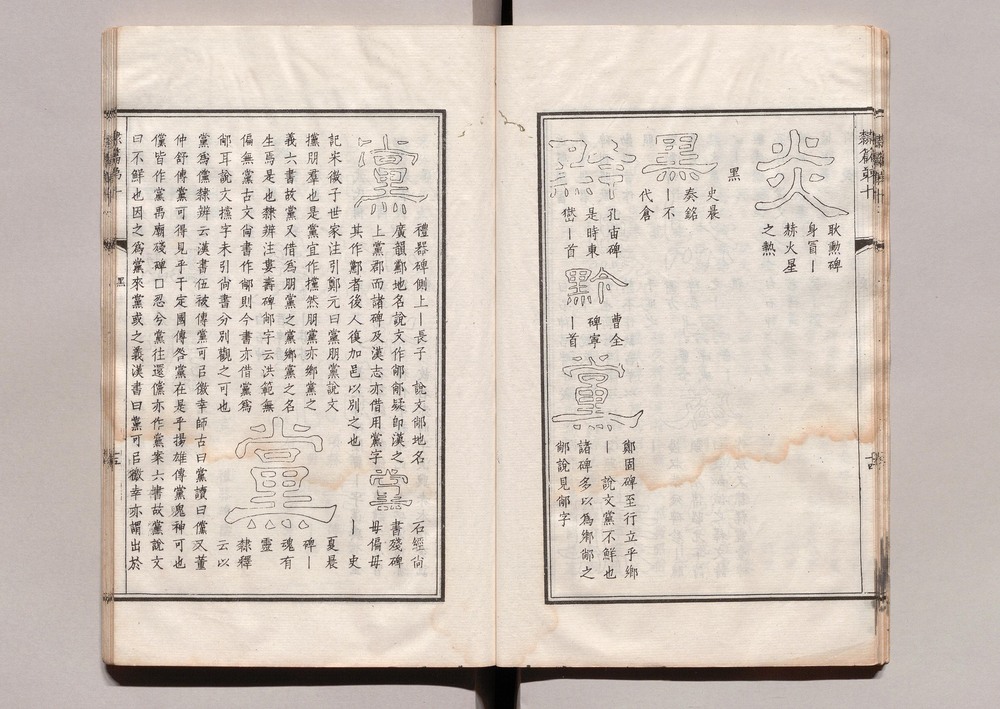 隸篇弟十
炎
耿勳碑
身冒｜
赫火星
之熱
黑
黑
史晨
奏銘
｜不
代倉
黔
孔宙碑
是時東
嶽｜首
黔
曹全
碑寧
｜首
黨
鄭固碑至行立乎鄉
｜ 說文黨不鮮也
諸碑多以為鄉䣊之
䣊說見䣊字
黨
禮器碑側上｜長子 說文䣊地名
廣韻𨞰地名說文作䣊䣊疑即漢之
上黨郡而諸碑及漢志亦借用黨字
其作𨞰者後人復加邑以別之也
黨
石經尚
書殘碑
毋偏毋
｜ 史
記宋微子世家注引鄭元曰黨朋黨說文
攩朋羣也是黨宜作攩然朋黨亦鄉黨之
義六書故黨又借為朋黨之黨鄉黨之名
生焉是也隸辨注婁壽碑䣊字云洪範無
偏無黨古文尚書作䣊則今書亦借黨為
䣊耳說文攩字未引尚書分別觀之可也
黨
夏承
碑｜
魂有
靈
隸釋
云以
黨為儻隸辨云漢書伍被傳黨可㠯徼幸師古曰黨讀曰儻又董
仲舒傳黨可得見乎于定國傳咎黨在是乎揚雄傳黨鬼神可也
儻皆作黨禹廟殘碑口忍兮黨往還儻亦作黨案六書故黨說文
曰不鮮也因之為黨來黨或之義漢書曰黨可㠯徼幸亦謂出於
黑